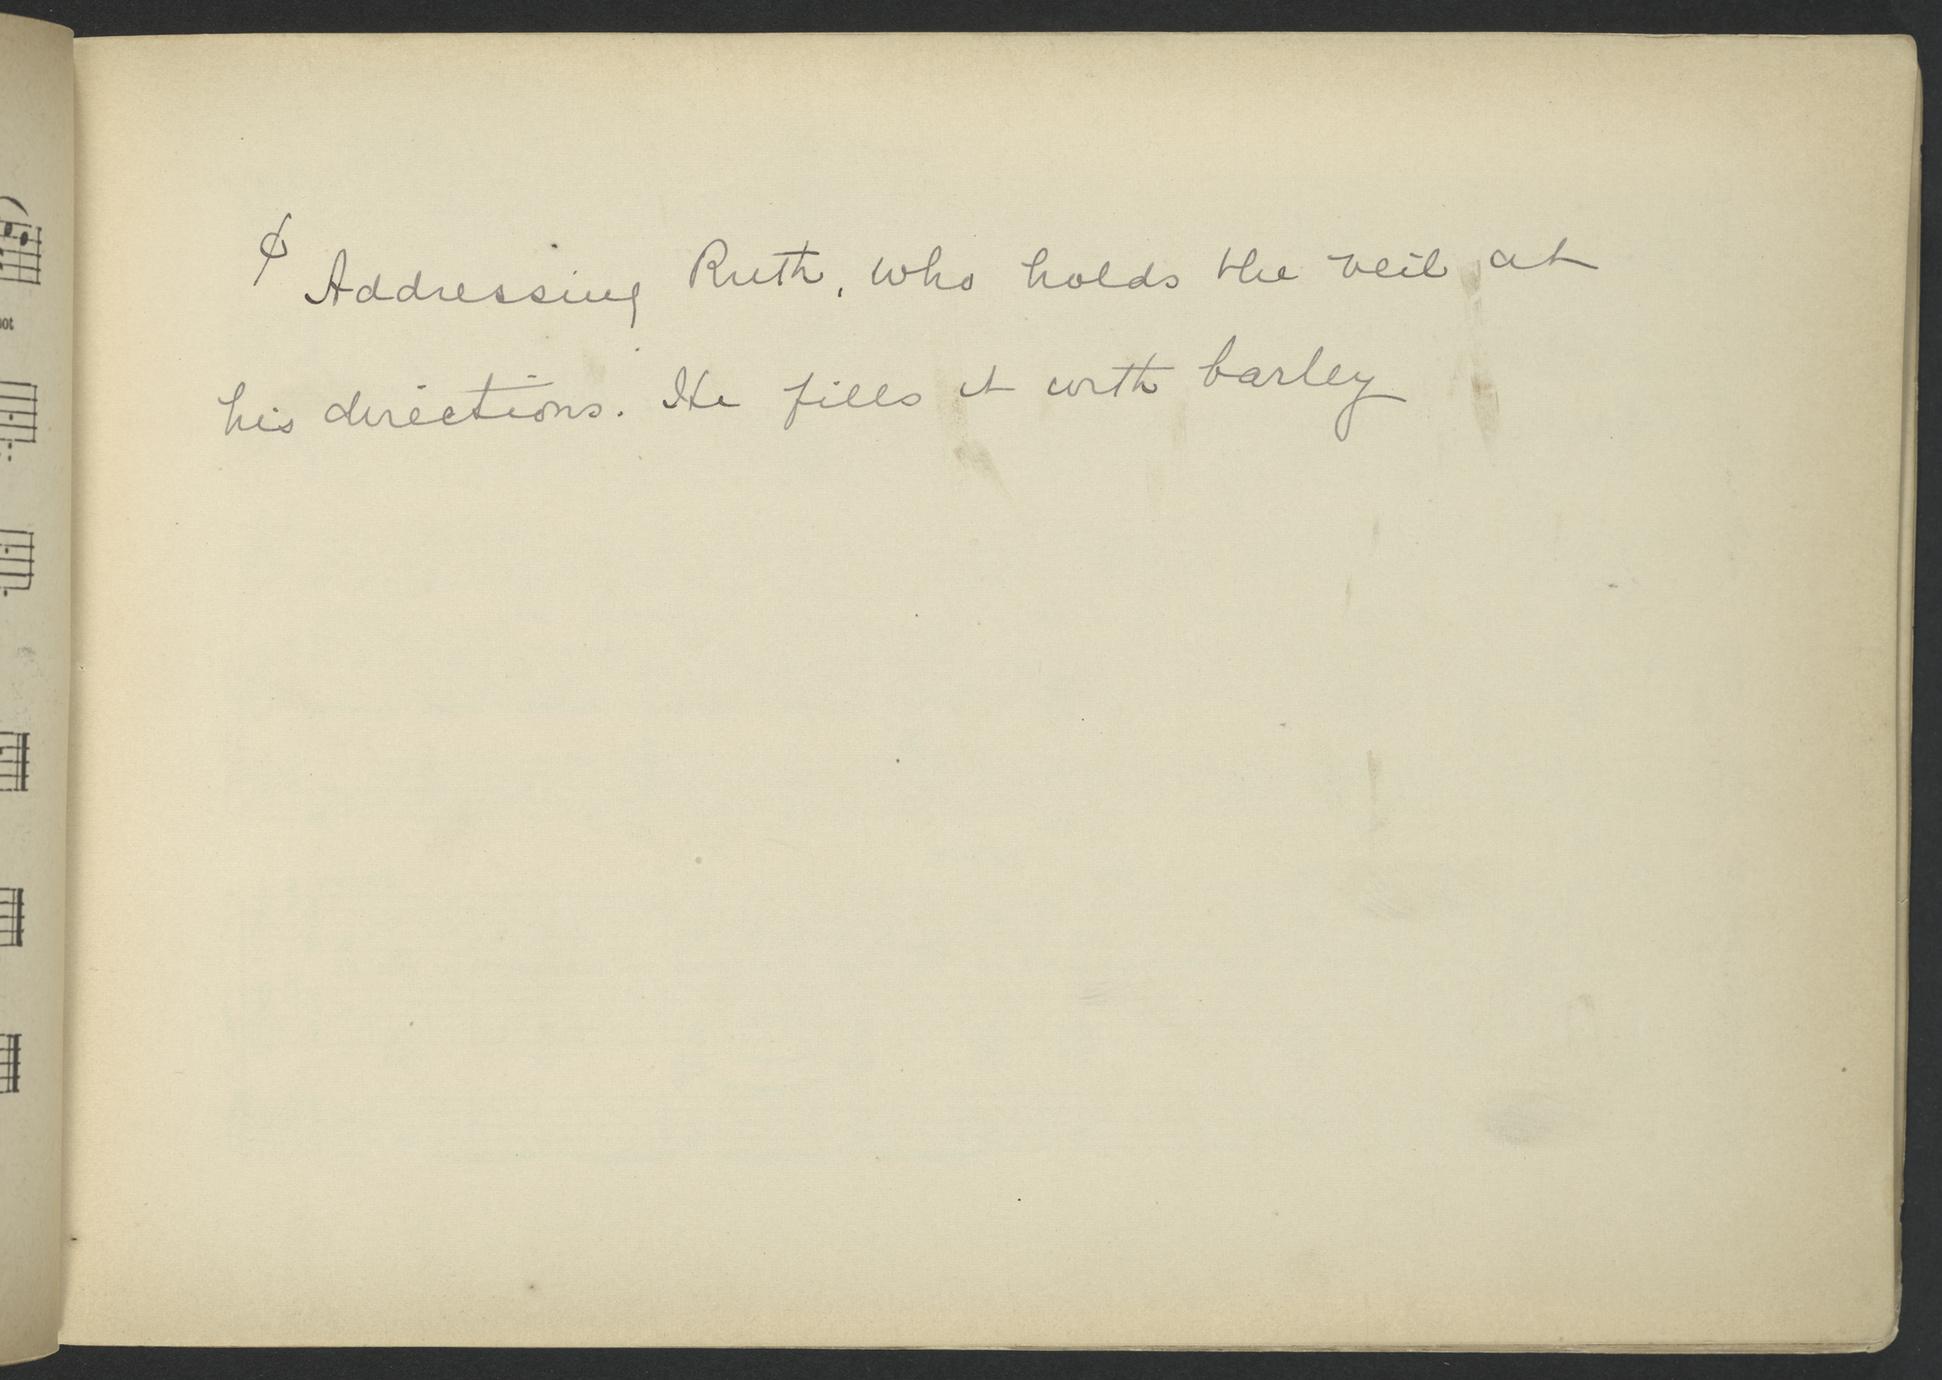 ¢ Addressing Ruth, who holds the veil at
his directions. He fills it with barley